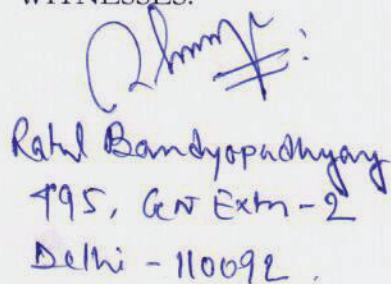 WITNESSES:
Ratul Bandyopadhyay
795, GN Extn-2
Delhi - 110092.